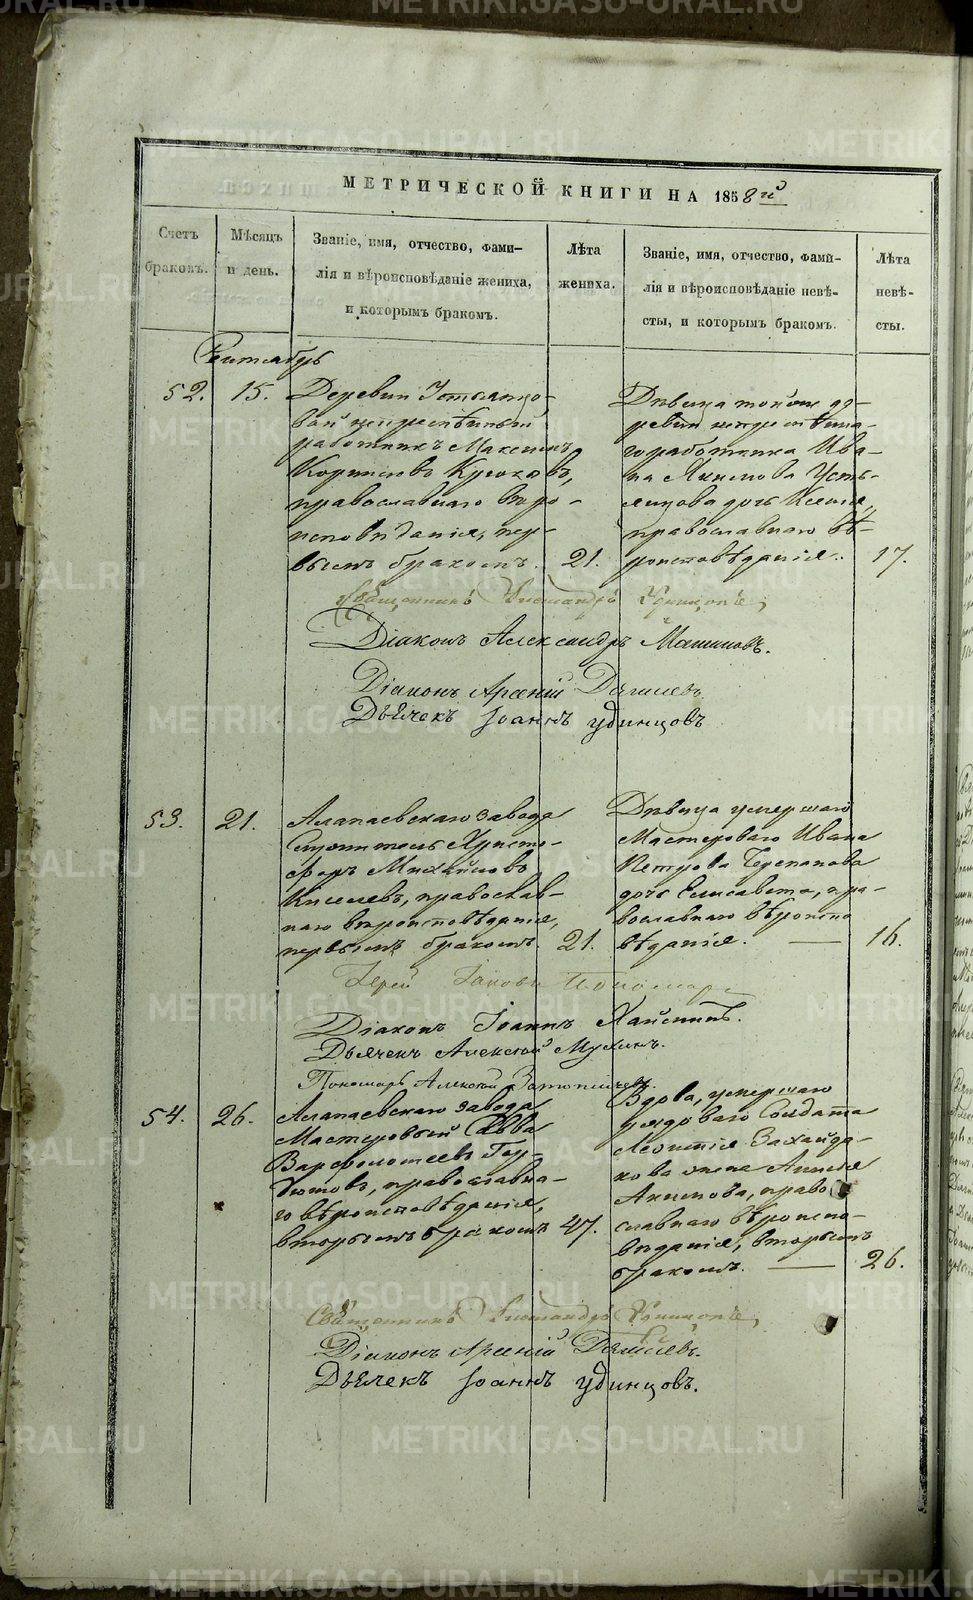 МЕТРИЧЕСКОЙ КНИГИ НА 1858й
Счетъ
браковъ.
Мѣсяцъ
и день.
Званіе, имя, отчество, фами-
лія и вѣроисповѣданіе жениха,
и которымъ бракомъ.
Лѣта
жениха.
Званіе, имя, отчество, фами-
лія и вѣроисповѣданіе невѣ-
сты, и которымъ бракомъ.
Лѣта
невѣ-
сты.
Сентябрь
52.
15.
Деревни
работникъ Максимъ
Крюковъ,
православнаго вѣро-
исповѣданія, пер-
вымъ бракомъ.
21.
Дѣвица той же де-
ревни
работника Ива-
на Якимова Усть-
янцова дочь Ксенія,
православнаго вѣ-
роисповѣданія.
17.
Священникъ Удинцовъ,
Діаконъ Александръ
Діаконъ Арсеній
Дьячекъ Іоаннъ Удинцовъ
53.
21.
Алапаевскаго завода
Служитель Христо-
форъ Михайловъ
Киселевъ, православ-
наго вѣроисповѣданія,
первымъ бракомъ.
21.
Дѣвица умершаго
Мастероваго Ивана
Петрова Черепанова
дочь Елисавета, пра-
вославнаго вѣроиспо
вѣданія.
16.
Іерей Іаковъ Пономаре
Діаконъ Іоаннъ
Дьячекъ Алексѣй Мухинъ.
Пономарь Алексѣй
54.
26.
Алапаевскаго завода
Мастеровый Савва
Варфоломеевъ
православна-
го вѣроисповѣданія,
вторымъ бракомъ
47.
Вдова, умершаго
рядоваго Солдата
Леонтія
кова жена Анисія
Акимова, право
славнаго вѣроиспо-
вѣданія, вторымъ
бракомъ.
26.
Священникъ Удинцовъ,
Діаконъ Арсеній
Дьячекъ Іоаннъ Удинцовъ.
METRIKI.GASO-URAL.RU